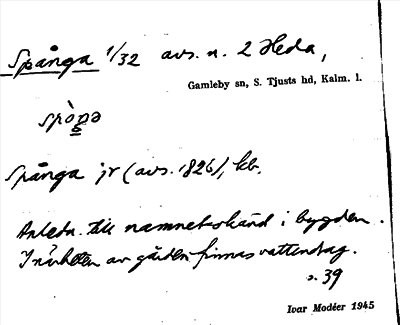 Spånga 1/32 avs. n. 2 Heda,
Gamleby sn, S. Tjusts hd, Kalm. l.
spòŋa
Spånga jr (avs. 1826), kb.
Anledn. till namnet okänd i bygden.
I närheten av gården finnes vattendrag.
s. 39
Ivar Modéer 1945